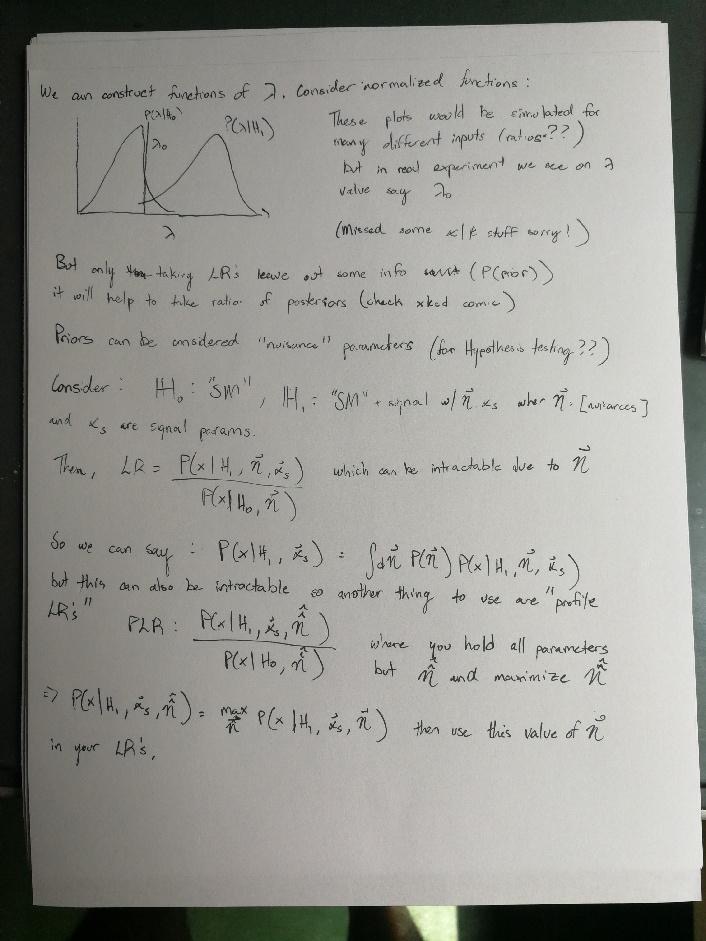 We can construct functions of λ. Consider normalized functions:
P(λ|H₀)
λ₀
P(λ|H₁)
λ
These plots would be simulated for
many different inputs (ratios??)
but in real experiment we see on λ
value say λ₀
(Missed some α/β stuff sorry!)
But only taking LR's leave out some info (P(prior))
it will help to take ratio of posteriors (check xkcd comic)
Priors can be considered "nuisance" parameters (for Hypothesis testing??)
Consider: H₀: "SM", H₁: "SM" + signal w/ n⃗ αs wher n⃗: [nuisances]
and αs are signal params.
Then, LR = P(x|H₁, n⃗, α⃗s) / P(x|H₀, n⃗) which can be intractable due to n⃗
So we can say: P(x|H₁, α⃗s) = ∫dn⃗ P(n⃗) P(x|H₁, n⃗, α⃗s)
but this can also be intractable so another thing to use are "profile
LR's" PLR: P(x|H₁, α⃗s, n̂⃗) / P(x|H₀, n̂⃗) where you hold all parameters
but n̂⃗ and maximize n̂⃗
=> P(x|H₁, α⃗s, n̂⃗) = max n⃗ P(x|H₁, α⃗s, n⃗) then use this value of n⃗
in your LR's.